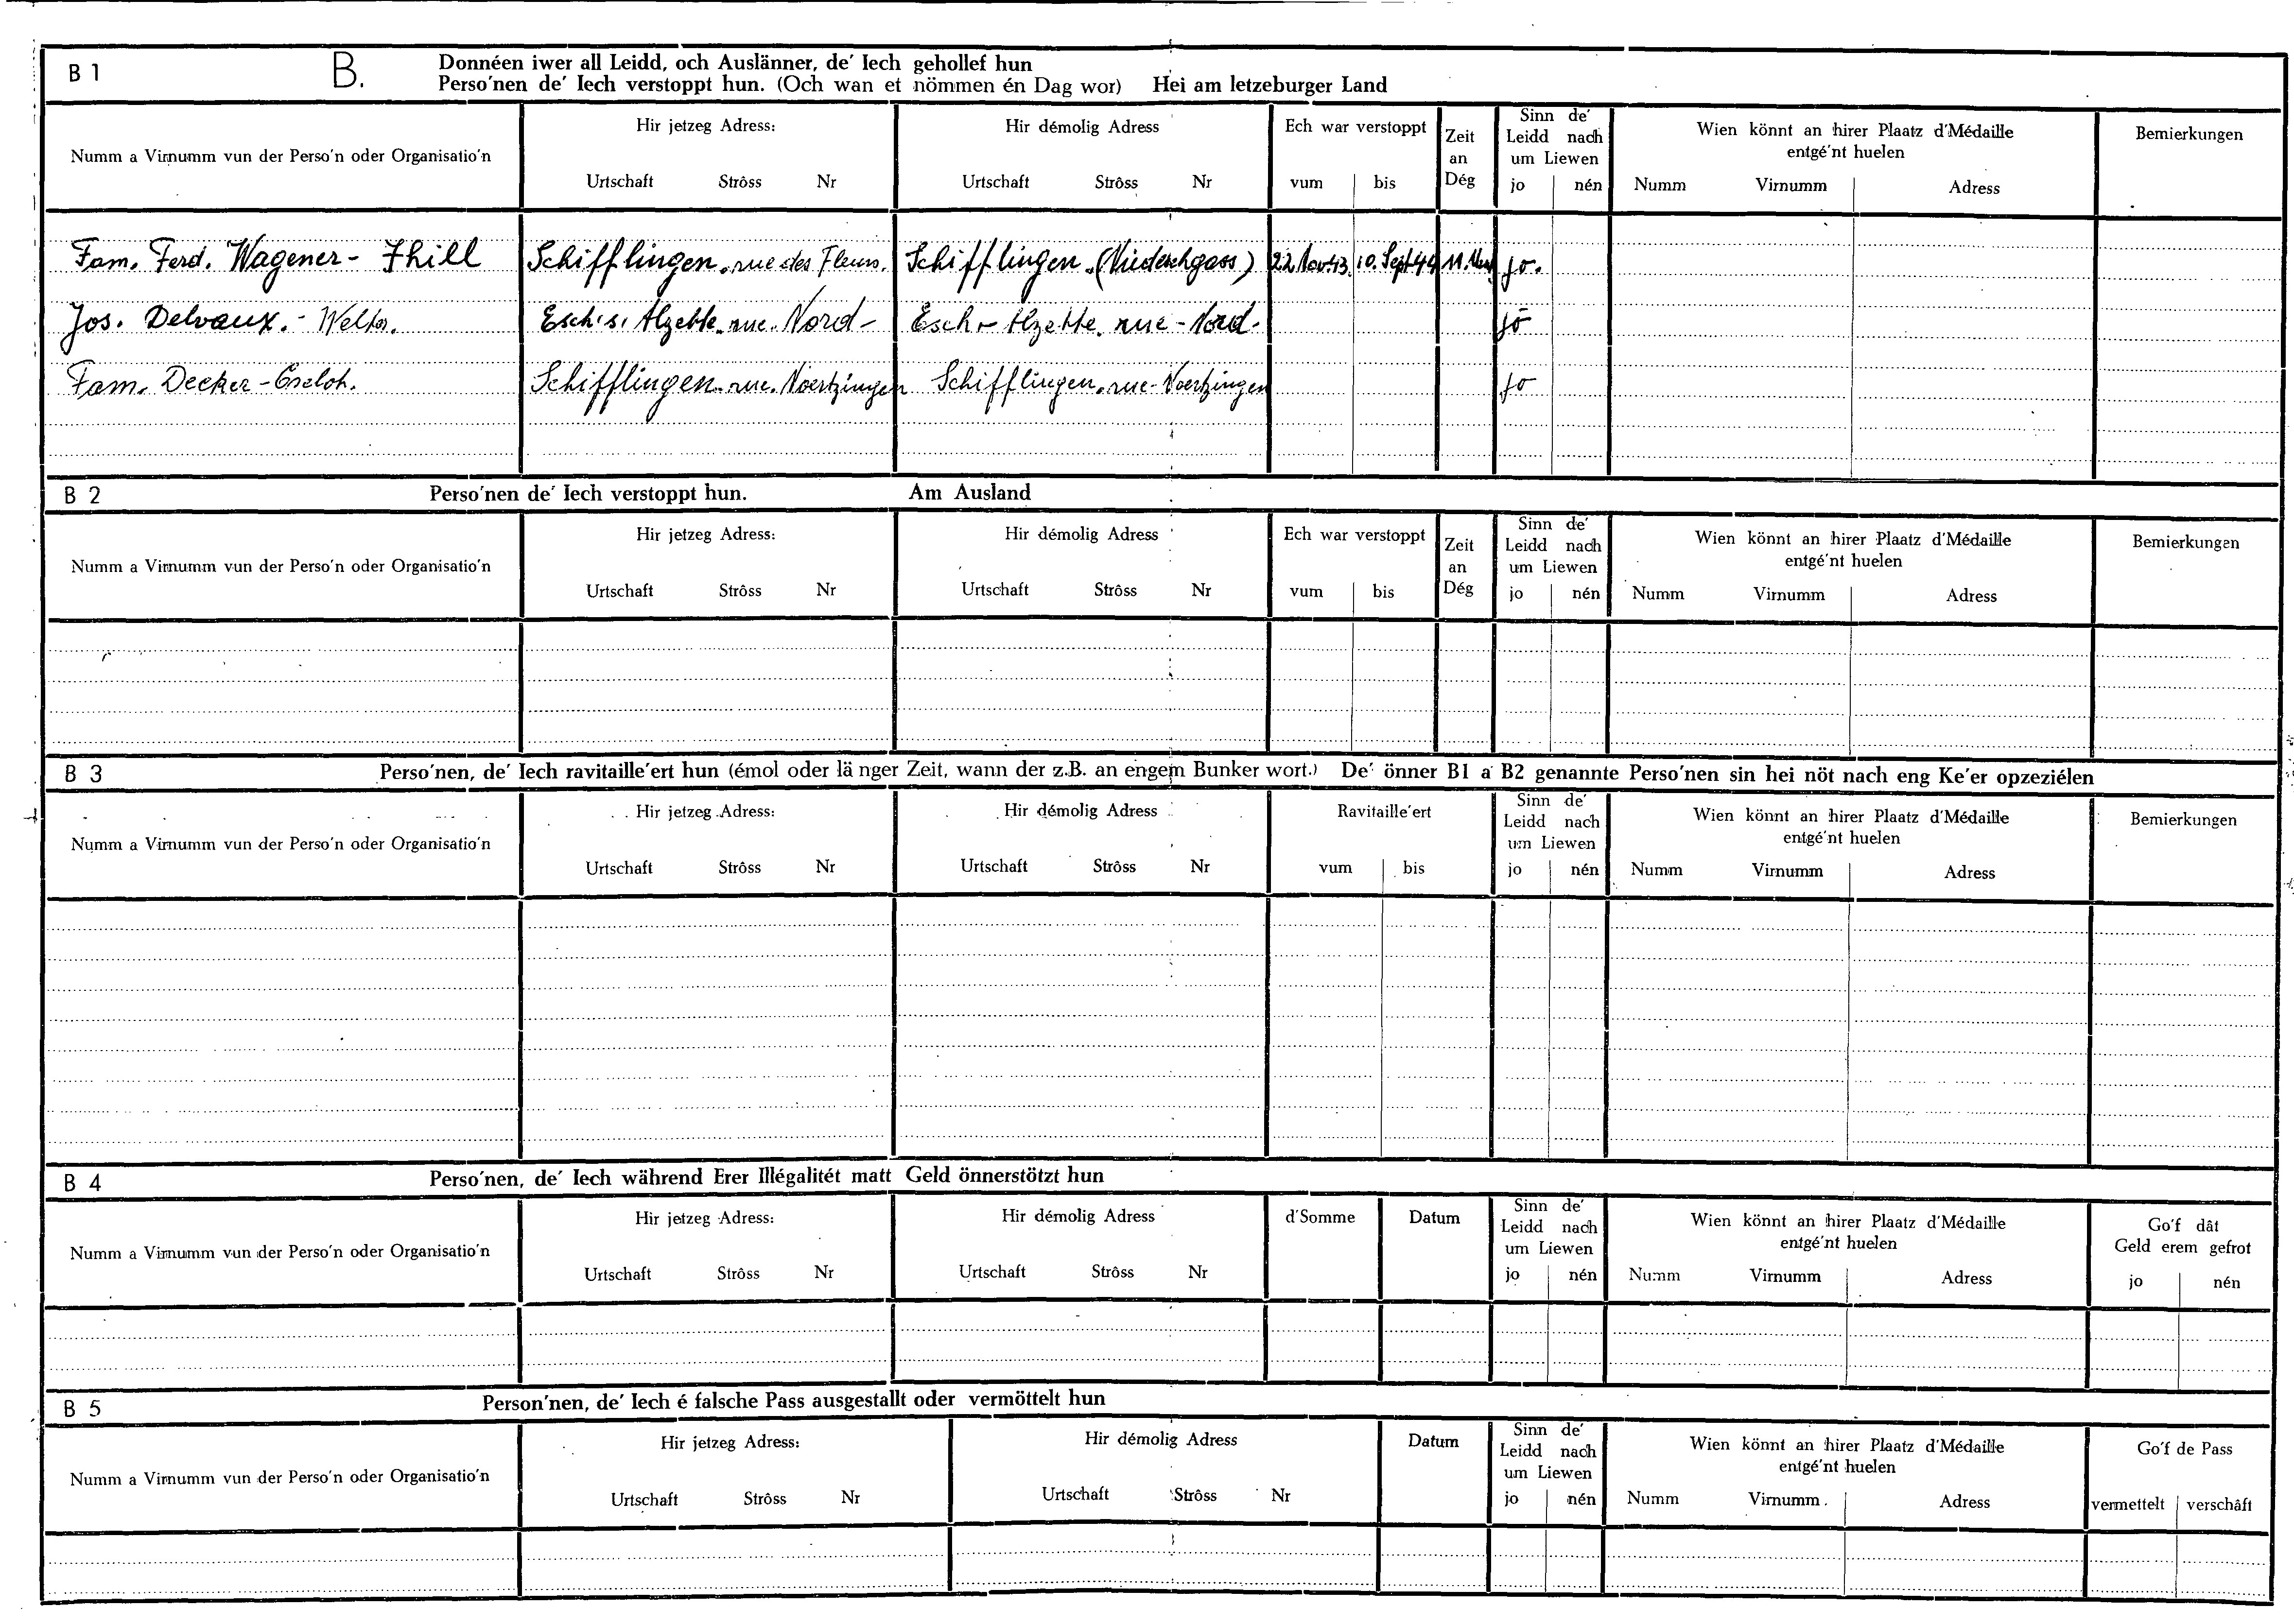 B 1 B. Donnéen iwer all Leidd, och Auslänner, de' Iech gehollef hun
Perso'nen de' Iech verstoppt hun. (Och wan et nömmen én Dag wor) Hei am letzeburger Land
Numm a Virnumm vun der Perso'n oder Organisatio'n
Hir jetzeg Adress:
Urtschaft Strôss Nr
Hir démolig Adress
Urtschaft Strôss Nr
Ech war verstoppt
vum bis
Zeit
an
Dég
Sinn de'
Leidd nach
um Liewen
jo nén
Wien könnt an hirer Plaatz d'Médaille
entgé'nt huelen
Numm Virnumm Adress
Bemierkungen
Fam. Ferd. Wagener - Thill Schifflingen. rue des Fleurs. Schifflingen. 22. Nov. 43. 10. Sept 44 11. jo.
Jos. Delvaux. - Welter. Esch. s. Alzette. rue. Nord- Esch - Alzette. rue - Nord. jo
Fam. Decker - Schifflingen. rue. Noertzingen Schifflingen. rue - Noertzingen jo
B 2 Perso'nen de' Iech verstoppt hun. Am Ausland
Numm a Virnumm vun der Perso'n oder Organisatio'n
Hir jetzeg Adress:
Urtschaft Strôss Nr
Hir démolig Adress
Urtschaft Strôss Nr
Ech war verstoppt
vum bis
Zeit
an
Dég
Sinn de'
Leidd nach
um Liewen
jo nén
Wien könnt an hirer Plaatz d'Médaille
entgé'nt huelen
Numm Virnumm Adress
Bemierkungen
B 3 Perso'nen, de' Iech ravitaille'ert hun (émol oder länger Zeit, wann der z.B. an engem Bunker wort.) De' önner B1 a B2 genannte Perso'nen sin hei nöt nach eng Ke'er opzeziélen
Numm a Virnumm vun der Perso'n oder Organisatio'n
Hir jetzeg Adress:
Urtschaft Strôss Nr
Hir démolig Adress
Urtschaft Strôss Nr
Ravitaille'ert
vum bis
Sinn de'
Leidd nach
um Liewen
jo nén
Wien könnt an hirer Plaatz d'Médaille
entgé'nt huelen
Numm Virnumm Adress
Bemierkungen
B 4 Perso'nen, de' Iech während Erer Illégalitét matt Geld önnerstötzt hun
Numm a Virnumm vun der Perso'n oder Organisatio'n
Hir jetzeg Adress:
Urtschaft Strôss Nr
Hir démolig Adress
Urtschaft Strôss Nr
d'Somme
Datum
Sinn de'
Leidd nach
um Liewen
jo nén
Wien könnt an hirer Plaatz d'Médaille
entgé'nt huelen
Numm Virnumm Adress
Go'f dât
Geld erem gefrot
jo nén
B 5 Person'nen, de' Iech é falsche Pass ausgestallt oder vermöttelt hun
Numm a Virnumm vun der Perso'n oder Organisatio'n
Hir jetzeg Adress:
Urtschaft Strôss Nr
Hir démolig Adress
Urtschaft Strôss Nr
Datum
Sinn de'
Leidd nach
um Liewen
jo nén
Wien könnt an hirer Plaatz d'Médaille
entgé'nt huelen
Numm Virnumm Adress
Go'f de Pass
vermettelt verschâft